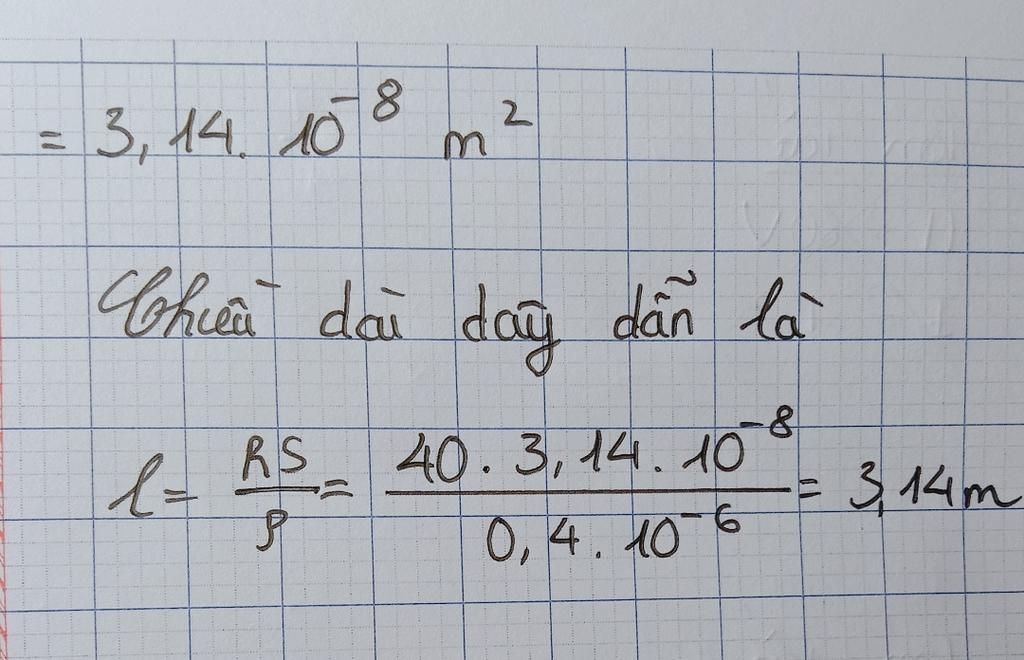 = 3,14. 10⁻⁸ m²
Chiều dài dây dẫn là
l = RS/ρ = 40 . 3,14 . 10⁻⁸ / 0,4 . 10⁻⁶ = 3,14 m